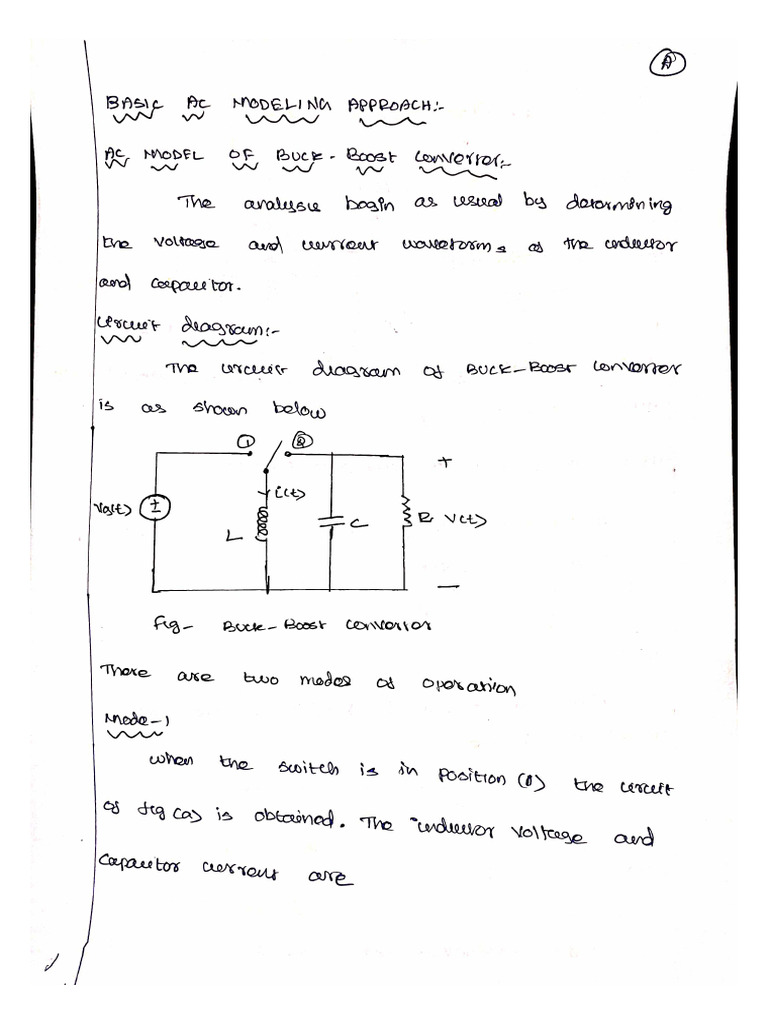 A
BASIC AC MODELING APPROACH:-
AC MODEL OF BUCK-BOOST Converter:-
The analysis begin as usual by determining
the voltage and current waveforms of the inductor
and capacitor.
Circuit diagram:-
The circuit diagram of BUCK-BOOST converter
is as shown below
1 2
+
i(t)
Vg(t) ±
L C R V(t)
—
fig- BUCK-BOOST converter
There are two modes of operation
Mode-1
when the switch is in position (1) the circuit
of fig (a) is obtained. The inductor voltage and
capacitor current are